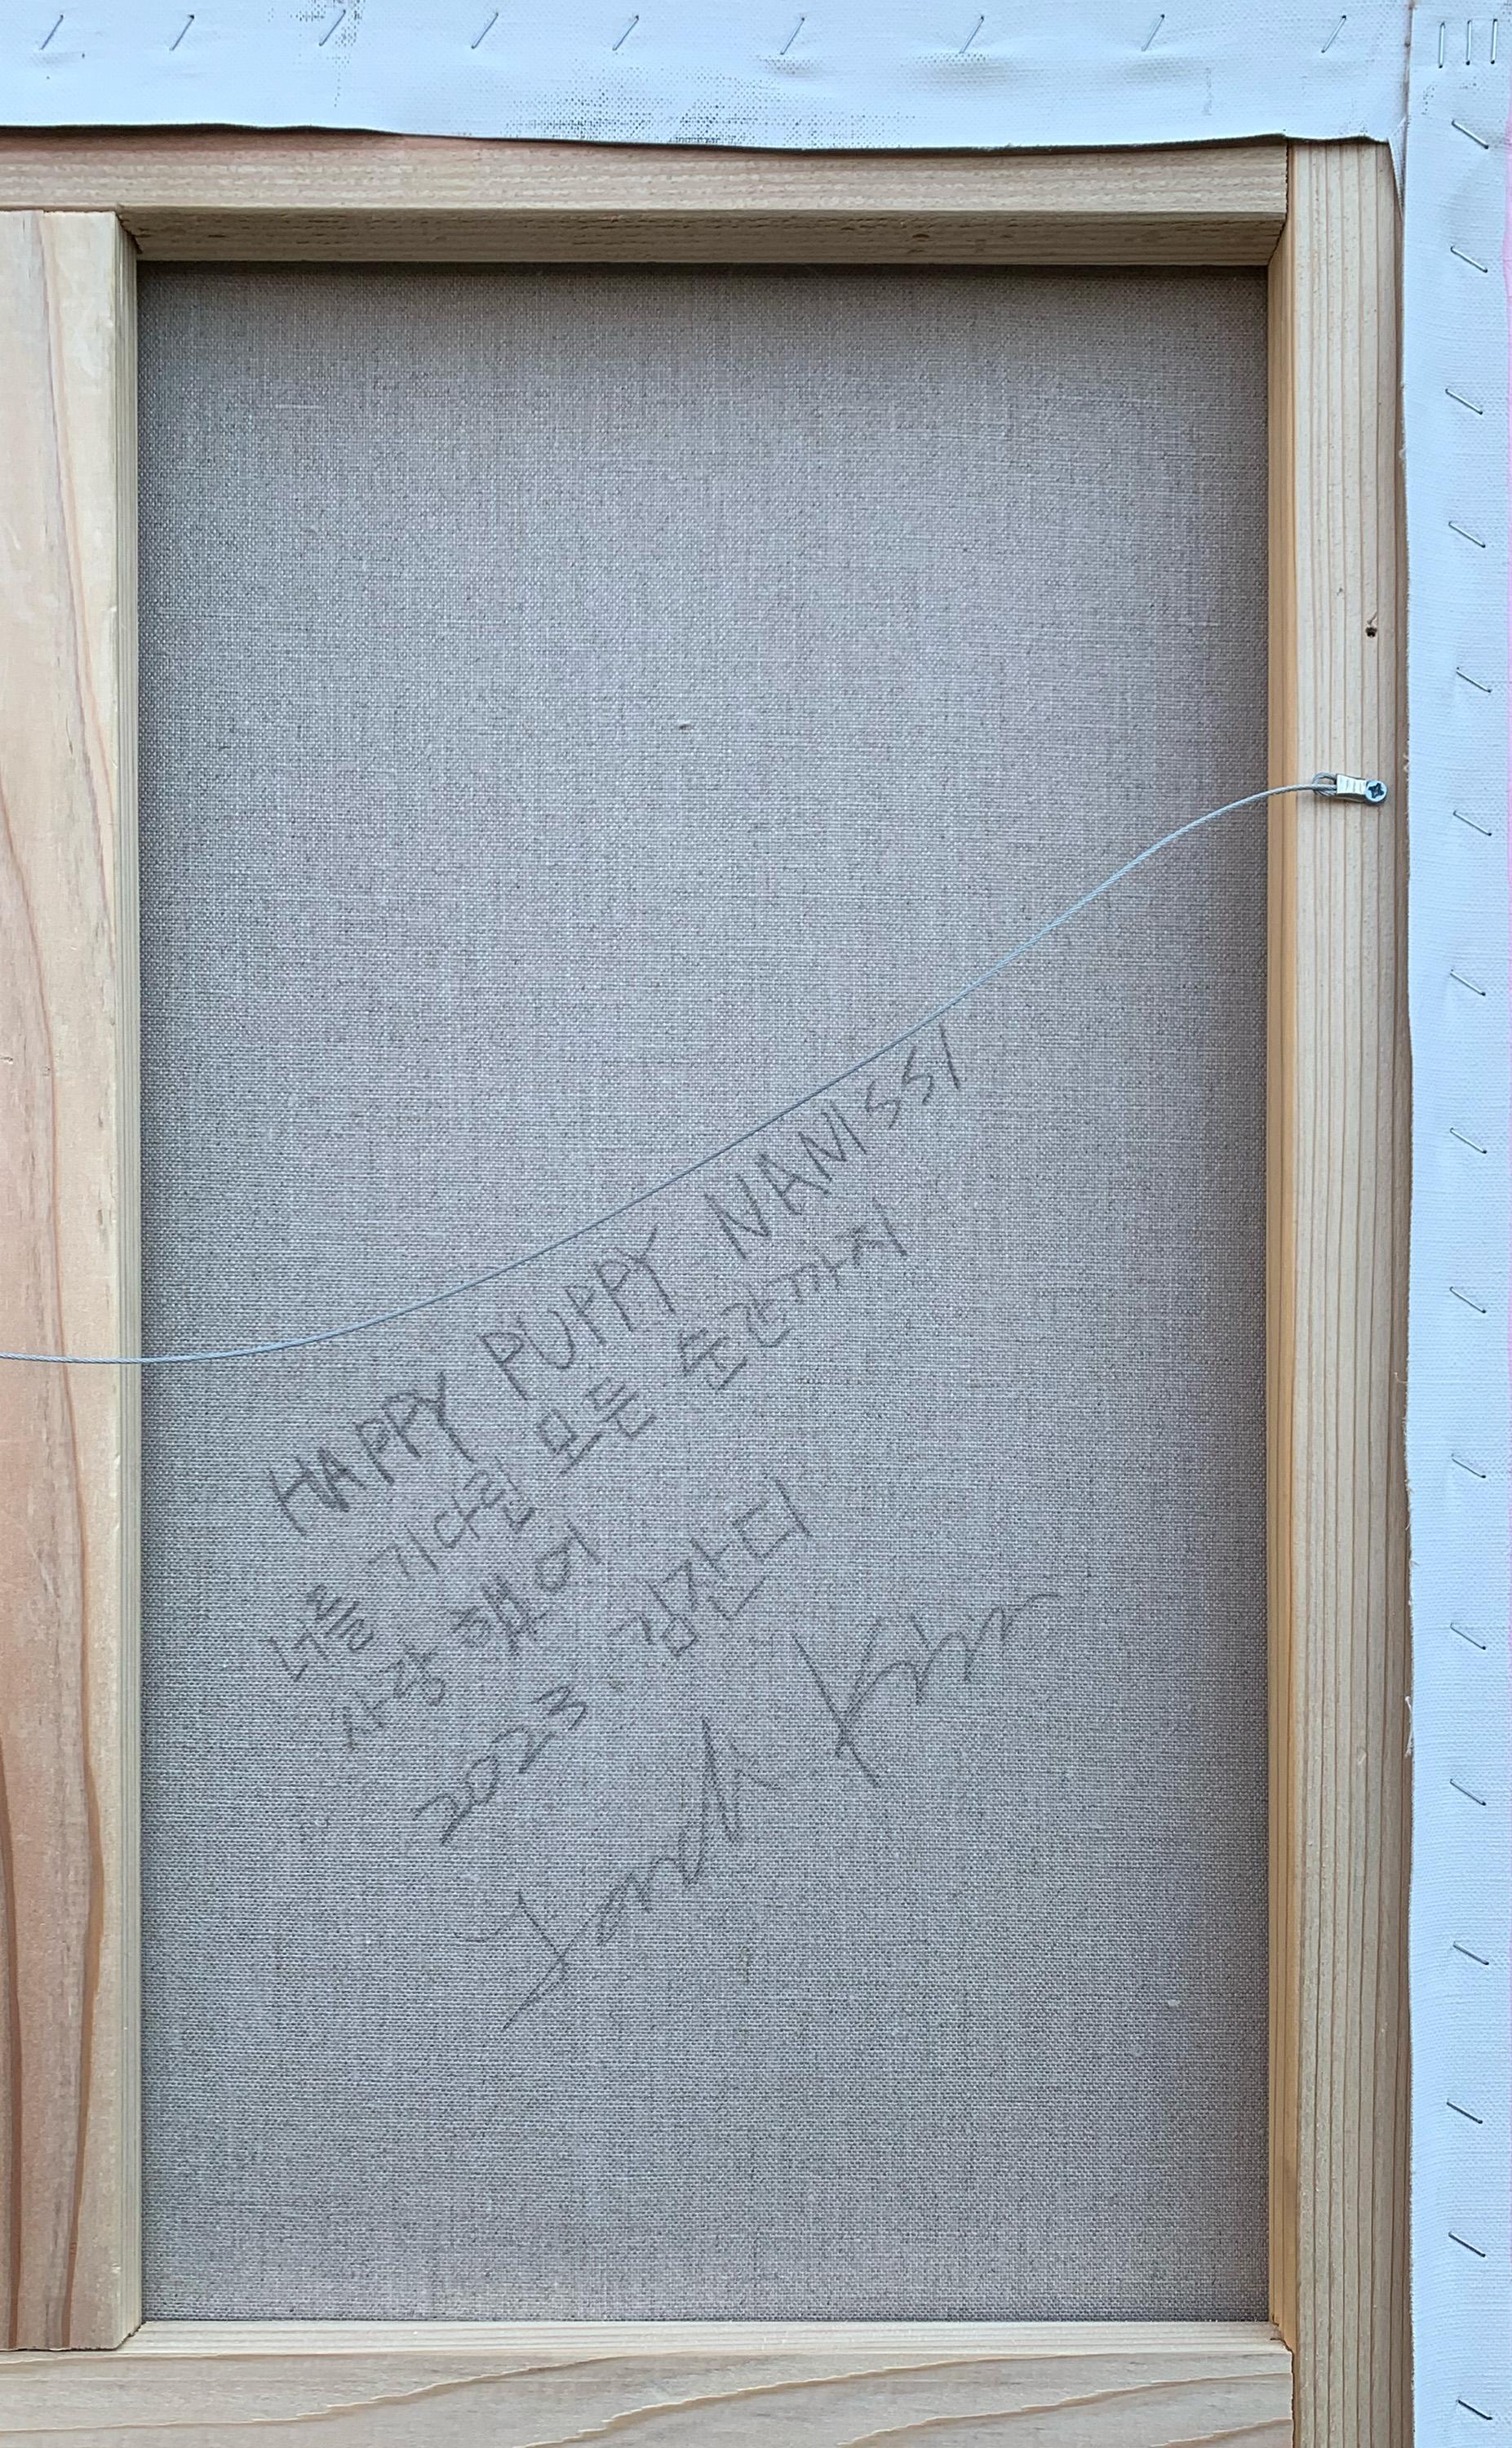 HAPPY PUPPY NANISSI
너를 기다린 모든 순간까지
사랑했어
2023 김잔디
Jandi Kim